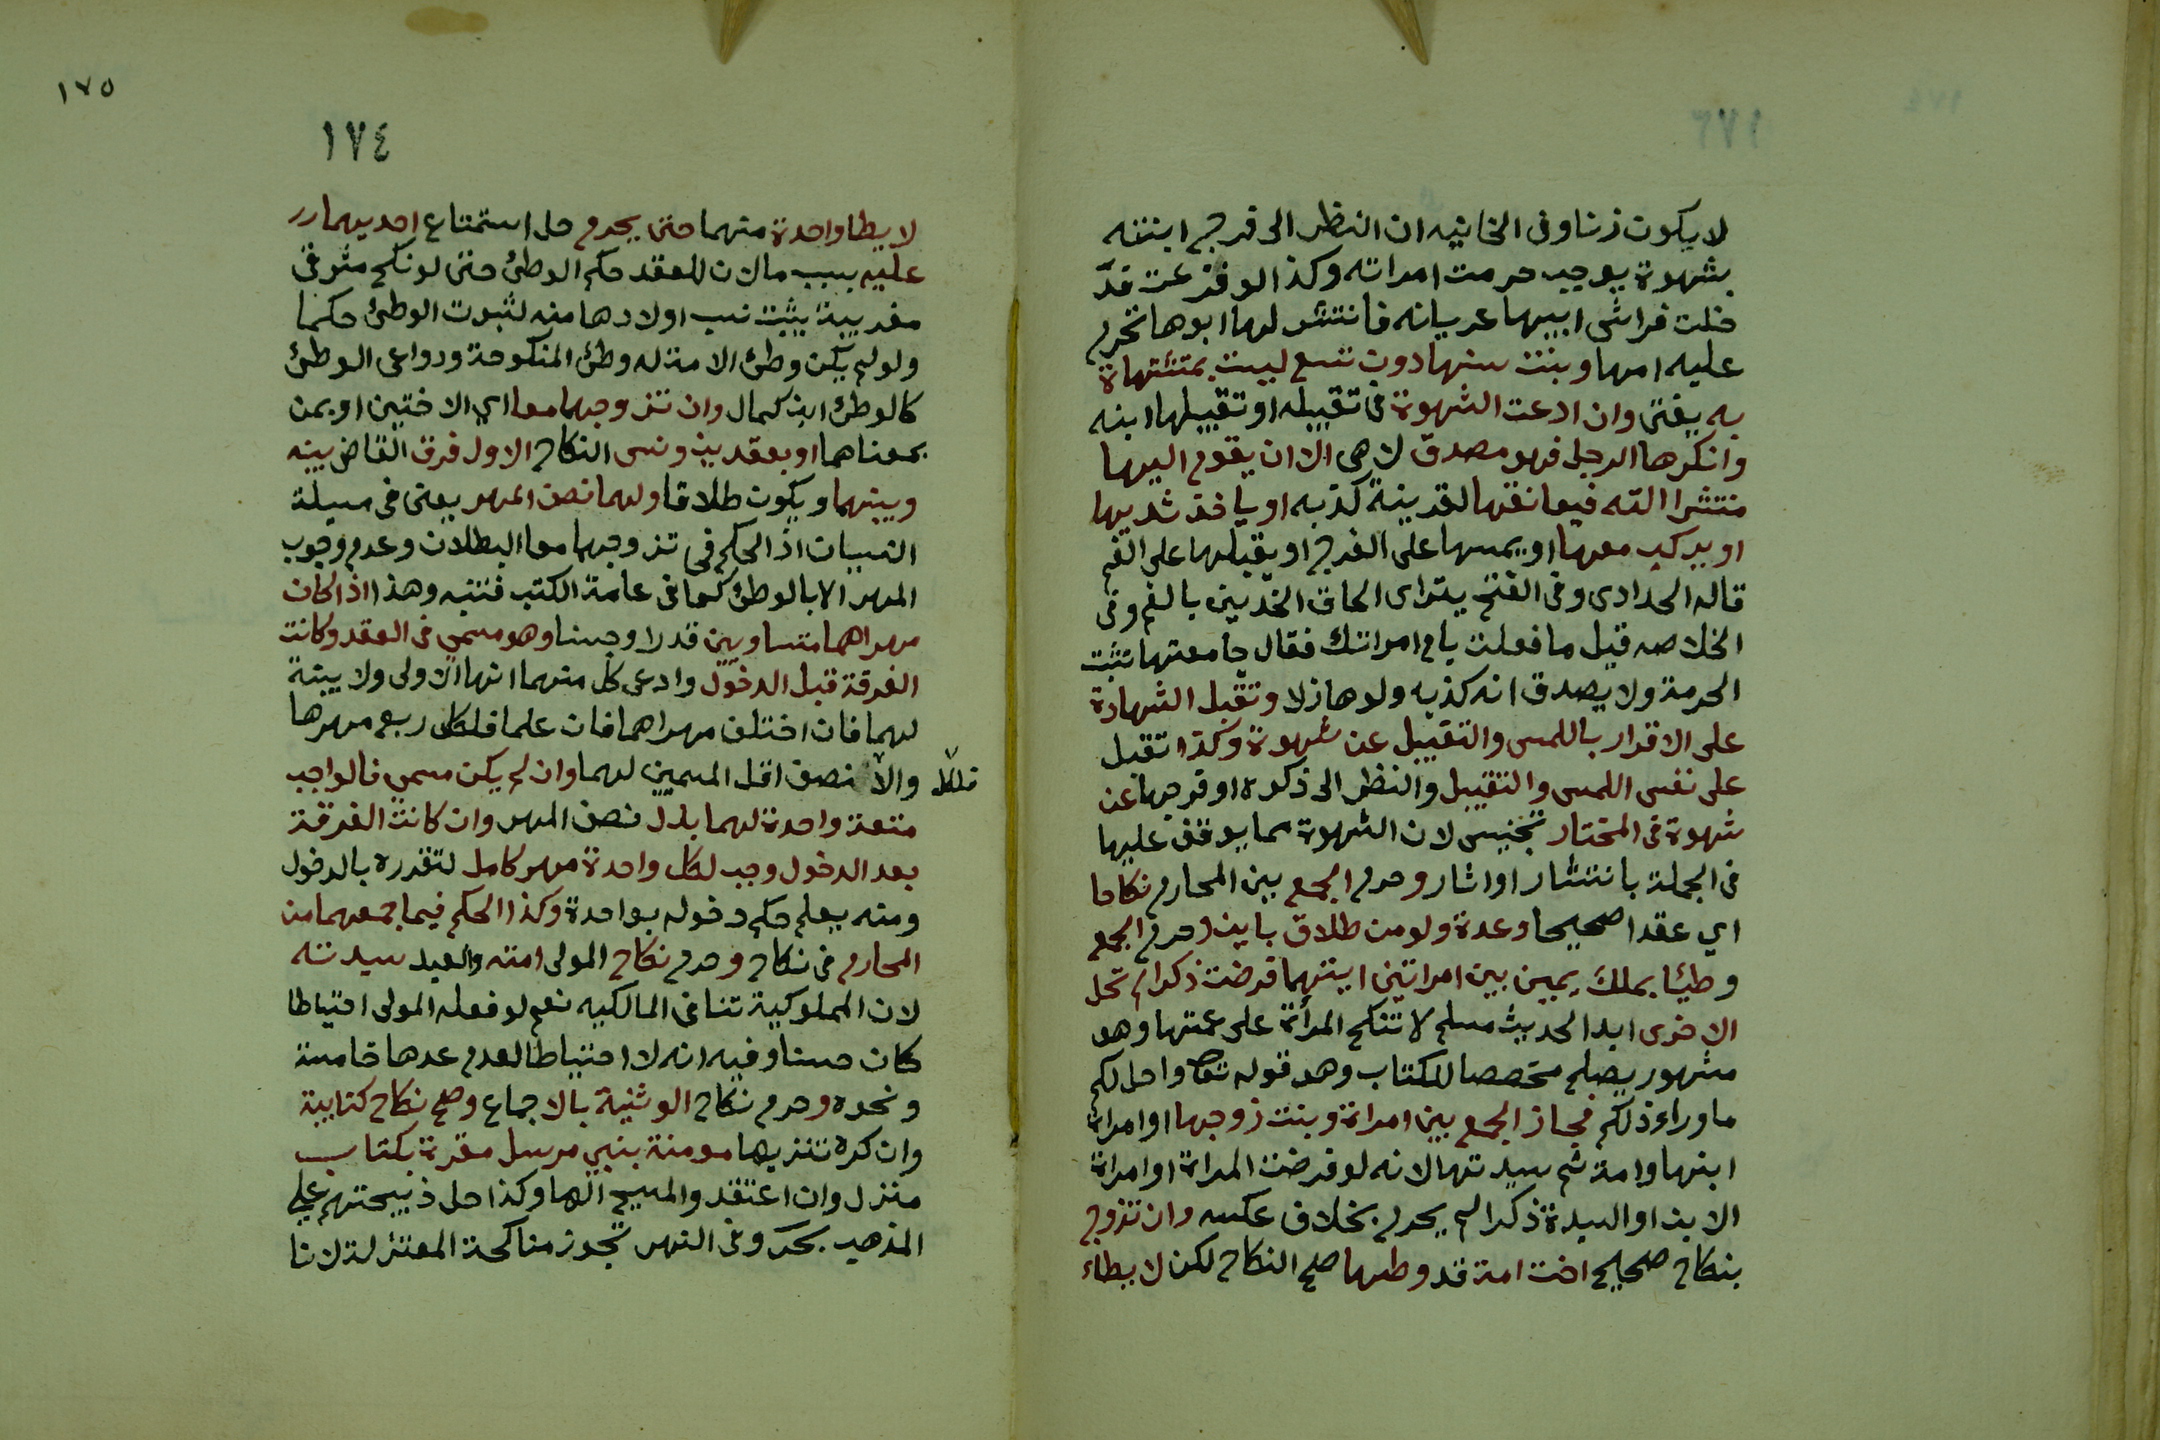 لا يكون زنا وفى الخانيه ان النظر الى فرج ابنته
بشهوة يوجب حرمت امراته وكذا لو فزعت فد
خلت فراش ابيها عريانه فانتشر لها ابوها تحرم
عليه امها وبنت سنها دون تسع ليست بمشتهاة
به يفتى وان ادعت الشهوة فى تقبيله او تقبيلها ابنه
وانكرها الرجل فهو مصدق لا هى الا ان يقوم اليها
منتشرا الته فيعانقها لقرينة كذبه او ياخذ ثديها
او يركب معها او يمسها على الفرج او يقبلها على الفم
قاله الحدادى وفى الفتح يتراى الحاق الخدين بالفم وفى
الخلاصه قيل ما فعلت بام امراتك فقال جامعتها تثبت
الحرمة ولا يصدق انه كذبه ولو هازلا وتقبل الشهادة
على الاقرار باللمس والتقبيل عن شهوة وكذا تقبل
على نفس اللمس والتقبيل والنظر الى ذكره او فرجها عن
شهوة فى المختار تجنيس لان الشهوة مما يوقف عليها
فى الجملة بانتشار او اثار وحرم الجمع بين المحارم نكاحا
اي عقدا صحيحا وعدة ولو من طلاق باين وحرم الجمع
وطيئا بملك يمين بين امراتين ايتهما فرضت ذكرا لم تحل
الاخرى ابدا لحديث مسلم لا تنكح المرأة على عمتها وهو
مشهور يصلح مخصصا للكتاب وهو قوله تعا واحل لكم
ما وراء ذلكم فجاز الجمع بين امراة وبنت زوجها او امراة
ابنها وامة ثم سيدتها لانه لو فرضت المراة او امراة
الابن او السيدة ذكرا لم يحرم بخلاف عكسه وان تزوج
بنكاح صحيح اخت امة قد وطىها صح النكاح لكن لا يطاء
١٧٥
١٧٤
لا يطا واحدة منهما حتى يحرم حل استمتاع احديهما رر
عليه بسبب ما لان للعقد حكم الوطئ حتى لو نكح مشرقى
مغربية يثبت نسب اولادها منه لثبوت الوطئ حكما
ولو لم يكن وطئ الامة له وطئ المنكوحة ودواعى الوطئ
كالوطئ ابن كمال وان تزوجهما معا اي الاختين او بمن
بمعناهما او بعقدين ونسى النكاح الاول فرق القاضى بينه
وبينهما ويكون طلاقا ولهما نصف المهر يعنى فى مسيلة
النسيان اذ الحكم فى تزوجهما معا البطلان وعدم وجوب
المهر الا بالوطئ كما فى عامة الكتب فتنبه وهذا اذا كان
مهراهما متساويين قدرا وجنسا وهو مسمى فى العقد وكانت
الفرقة قبل الدخول وادعى كل منهما انها الاولى ولا بينة
لهما فان اختلف مهراهما فان علما فلكل ربع مهرها
والا نصف اقل المسميين لهما وان لم يكن مسمى فالواجب
فلكل
متعة واحدة لهما بدل نصف المهر وان كانت الفرقة
بعد الدخول وجب لكل واحدة مهر كامل لتقرره بالدخول
ومنه يعلم حكم دخوله بواحدة وكذا الحكم فيما جمعهما من
المحارم فى نكاح وحرم نكاح المولى امته والعبد سيدته
لان المملوكية تنافى المالكيه نعم لو فعله المولى احتياطا
كان حسنا وفيه انه لا احتياط لعدم عدها خامسة
ونحوه وحرم نكاح الوثنية بالاجماع وصح نكاح كتابية
وان كره تنزيها مومنة بنبي مرسل مقرة بكتاب
منزل وان اعتقدو المسيح الها وكذا حل ذبيحتهم على
المذهب بحر وفى النهر تجوز مناكحة المعتزلة لانا